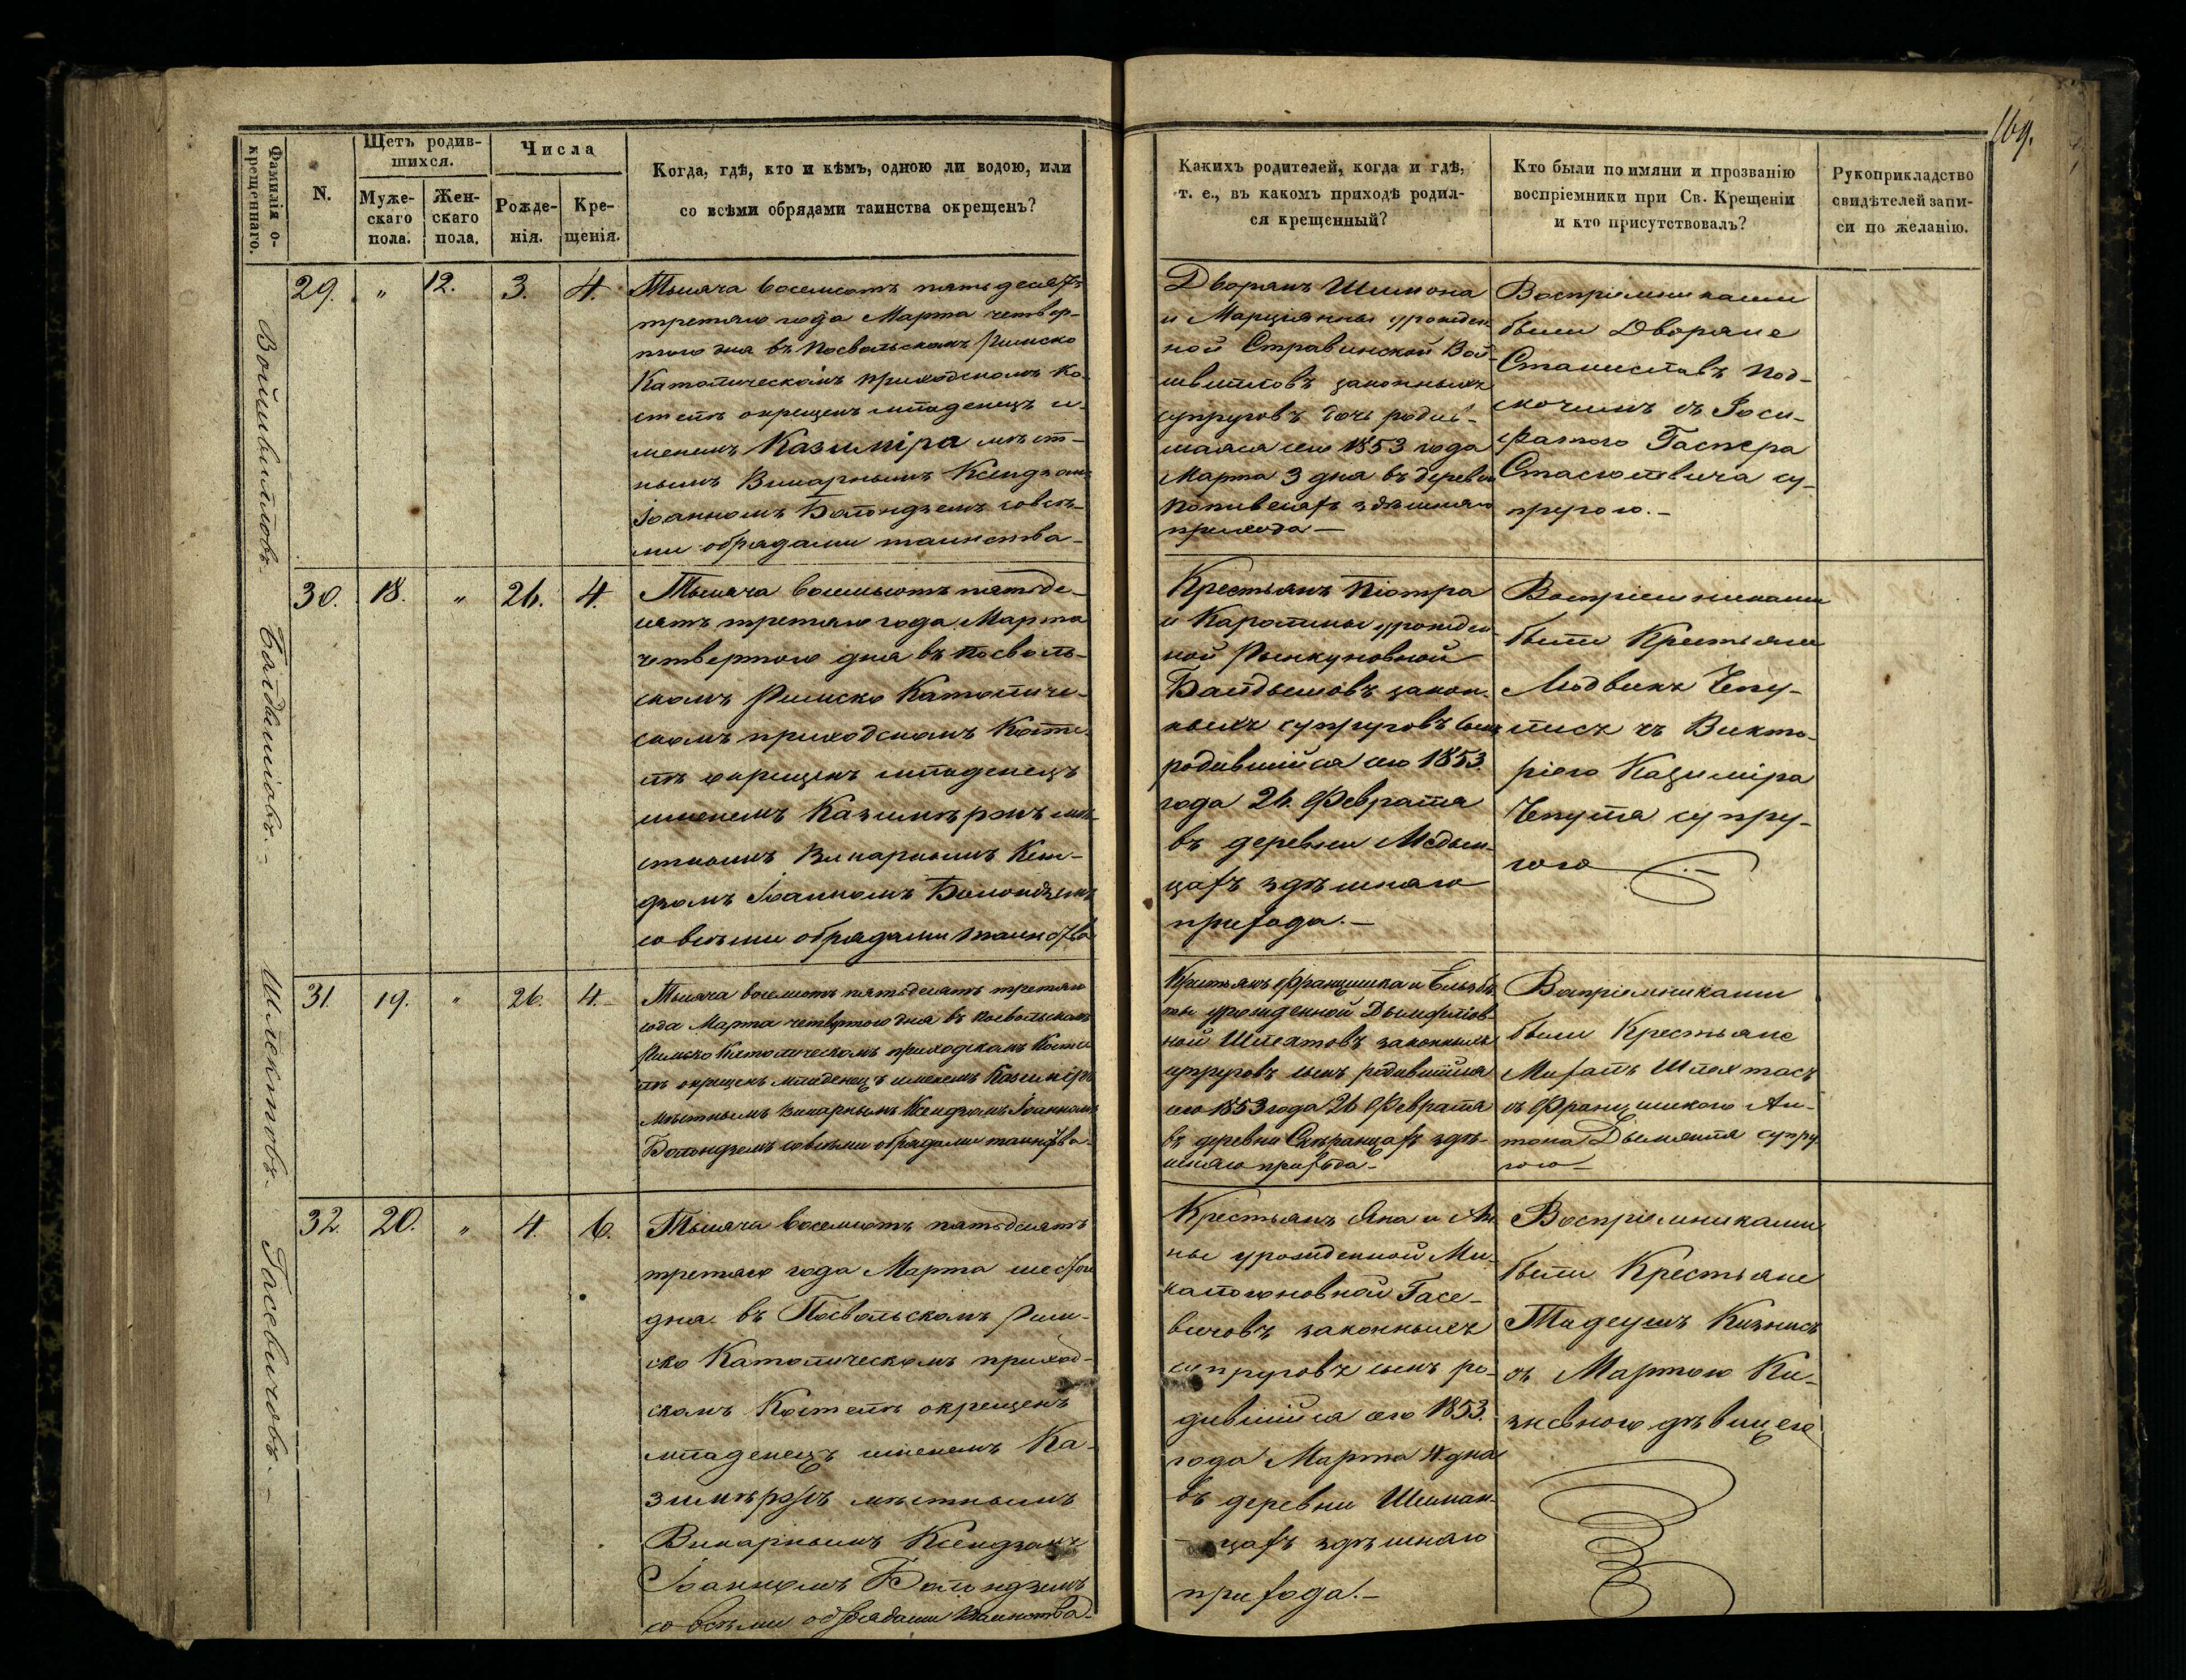 169.
Фамилія о-
крещеннаго.
N.
Щетъ родив-
шихся.
Муже-
скаго
пола.
Жен-
скаго
пола.
Числа
Рожде-
нія.
Кре-
щенія.
Когда, гдѣ, кто и кѣмъ, одною ли водою, или
со всѣми обрядами таинства окрещенъ?
Какихъ родителей, когда и гдѣ,
т. е., въ какомъ приходѣ родил-
ся крещенный?
Кто были по имяни и прозванію
воспріемники при Св. Крещеніи
и кто присутствовалъ?
Рукоприкладство
свидѣтелей запи-
си по желанію.
Войшвилловъ.
29.
"
12.
3.
4.
Тысяча восемсотъ пятьдесятъ
третяго года Марта четвер-
таго дня въ Посвольскомъ Римско
Католическомъ приходскомъ Ко-
стелѣ окрещенъ младенецъ и-
менемъ Казиміра мѣст-
нымъ Викарнымъ Ксендзомъ
Іоанномъ Болондземъ со всѣ-
ми обрядами таинства
Дворянъ Шимона
и Марціянны урожден
ной Стравинской Вой-
швилловъ законныхъ
супруговъ дочь родив-
шаяся сего 1853 года
Марта 3 дня въ деревни
здѣшняго
прихода
Воспріемниками
были Дворяне
Станиславъ Под-
съ Іоси-
фатою Гаспера
Стасюлевича су-
пругою.
Балдышовъ.
30.
18.
"
26.
4.
Тысяча восемьсотъ пятьде-
сятъ третяго года Марта
четвертого дня въ Посволь-
скомъ Римско Католиче-
скомъ приходскомъ Косте-
лѣ окрещенъ младенецъ
именемъ Казимѣръ мѣ-
стнымъ Викарнымъ Ксен-
дзомъ Іоанномъ Болондземъ
со всѣми обрядами таинства
Крестьянъ Піотра
и Каролины урожден
ной Рынкуновной
Балдышовъ закон-
ныхъ супруговъ сынъ
родившійся сего 1853.
года 26. Февраля
въ деревни Медын-
цахъ здѣшняго
прихода.
Воспріемниками
были Крестьяне
Людвикъ Чепу-
лисъ съ Викто-
ріею Казиміра
Чепуля супру-
гою
Шлектовъ.
31.
19.
"
26.
4.
Тысяча восемсотъ пятьдесятъ третяго
года Марта четвертого дня въ Посвольскомъ
Римско Католическомъ приходскомъ Косте
лѣ окрещенъ младенецъ именемъ Казиміръ
мѣстнымъ Викарнымъ Ксендзомъ Іоанномъ
Болондземъ со всѣми обрядами таинства
Крестьянъ Францишка и Ельжбѣ
ты урожденной
ной Шлектовъ законныхъ
супруговъ сынъ родившійся
сего 1853 года 26 Февраля
въ деревни здѣ-
шняго прихода
Воспріемниками
были Крестьяне
Михалъ Шлехтасъ
съ Францишкою Ан-
тона супру
гою
Гасевичовъ.
32.
20.
"
4.
6.
Тысяча восемсотъ пятьдесятъ
третяго года Марта шестого
дня въ Посвольскомъ Рим-
ско Католическомъ приход-
скомъ Костелѣ окрещенъ
младенецъ именемъ Ка-
зимѣръ мѣстнымъ
Викарнымъ Ксендзомъ
Іоанномъ Болондземъ
со всѣми обрядами таинства
Крестьянъ Яна и Ан
ны урожденной Ми-
калоюновной Гасе-
вичовъ законныхъ
супруговъ сынъ ро-
дившійся сего 1853.
года Марта 4 дня
въ деревни Шиман-
цахъ здѣшняго
прихода.
Воспріемниками
были Крестьяне
Тадеушъ Кизнисъ
съ Мартою Ки-
зневною дѣвицею